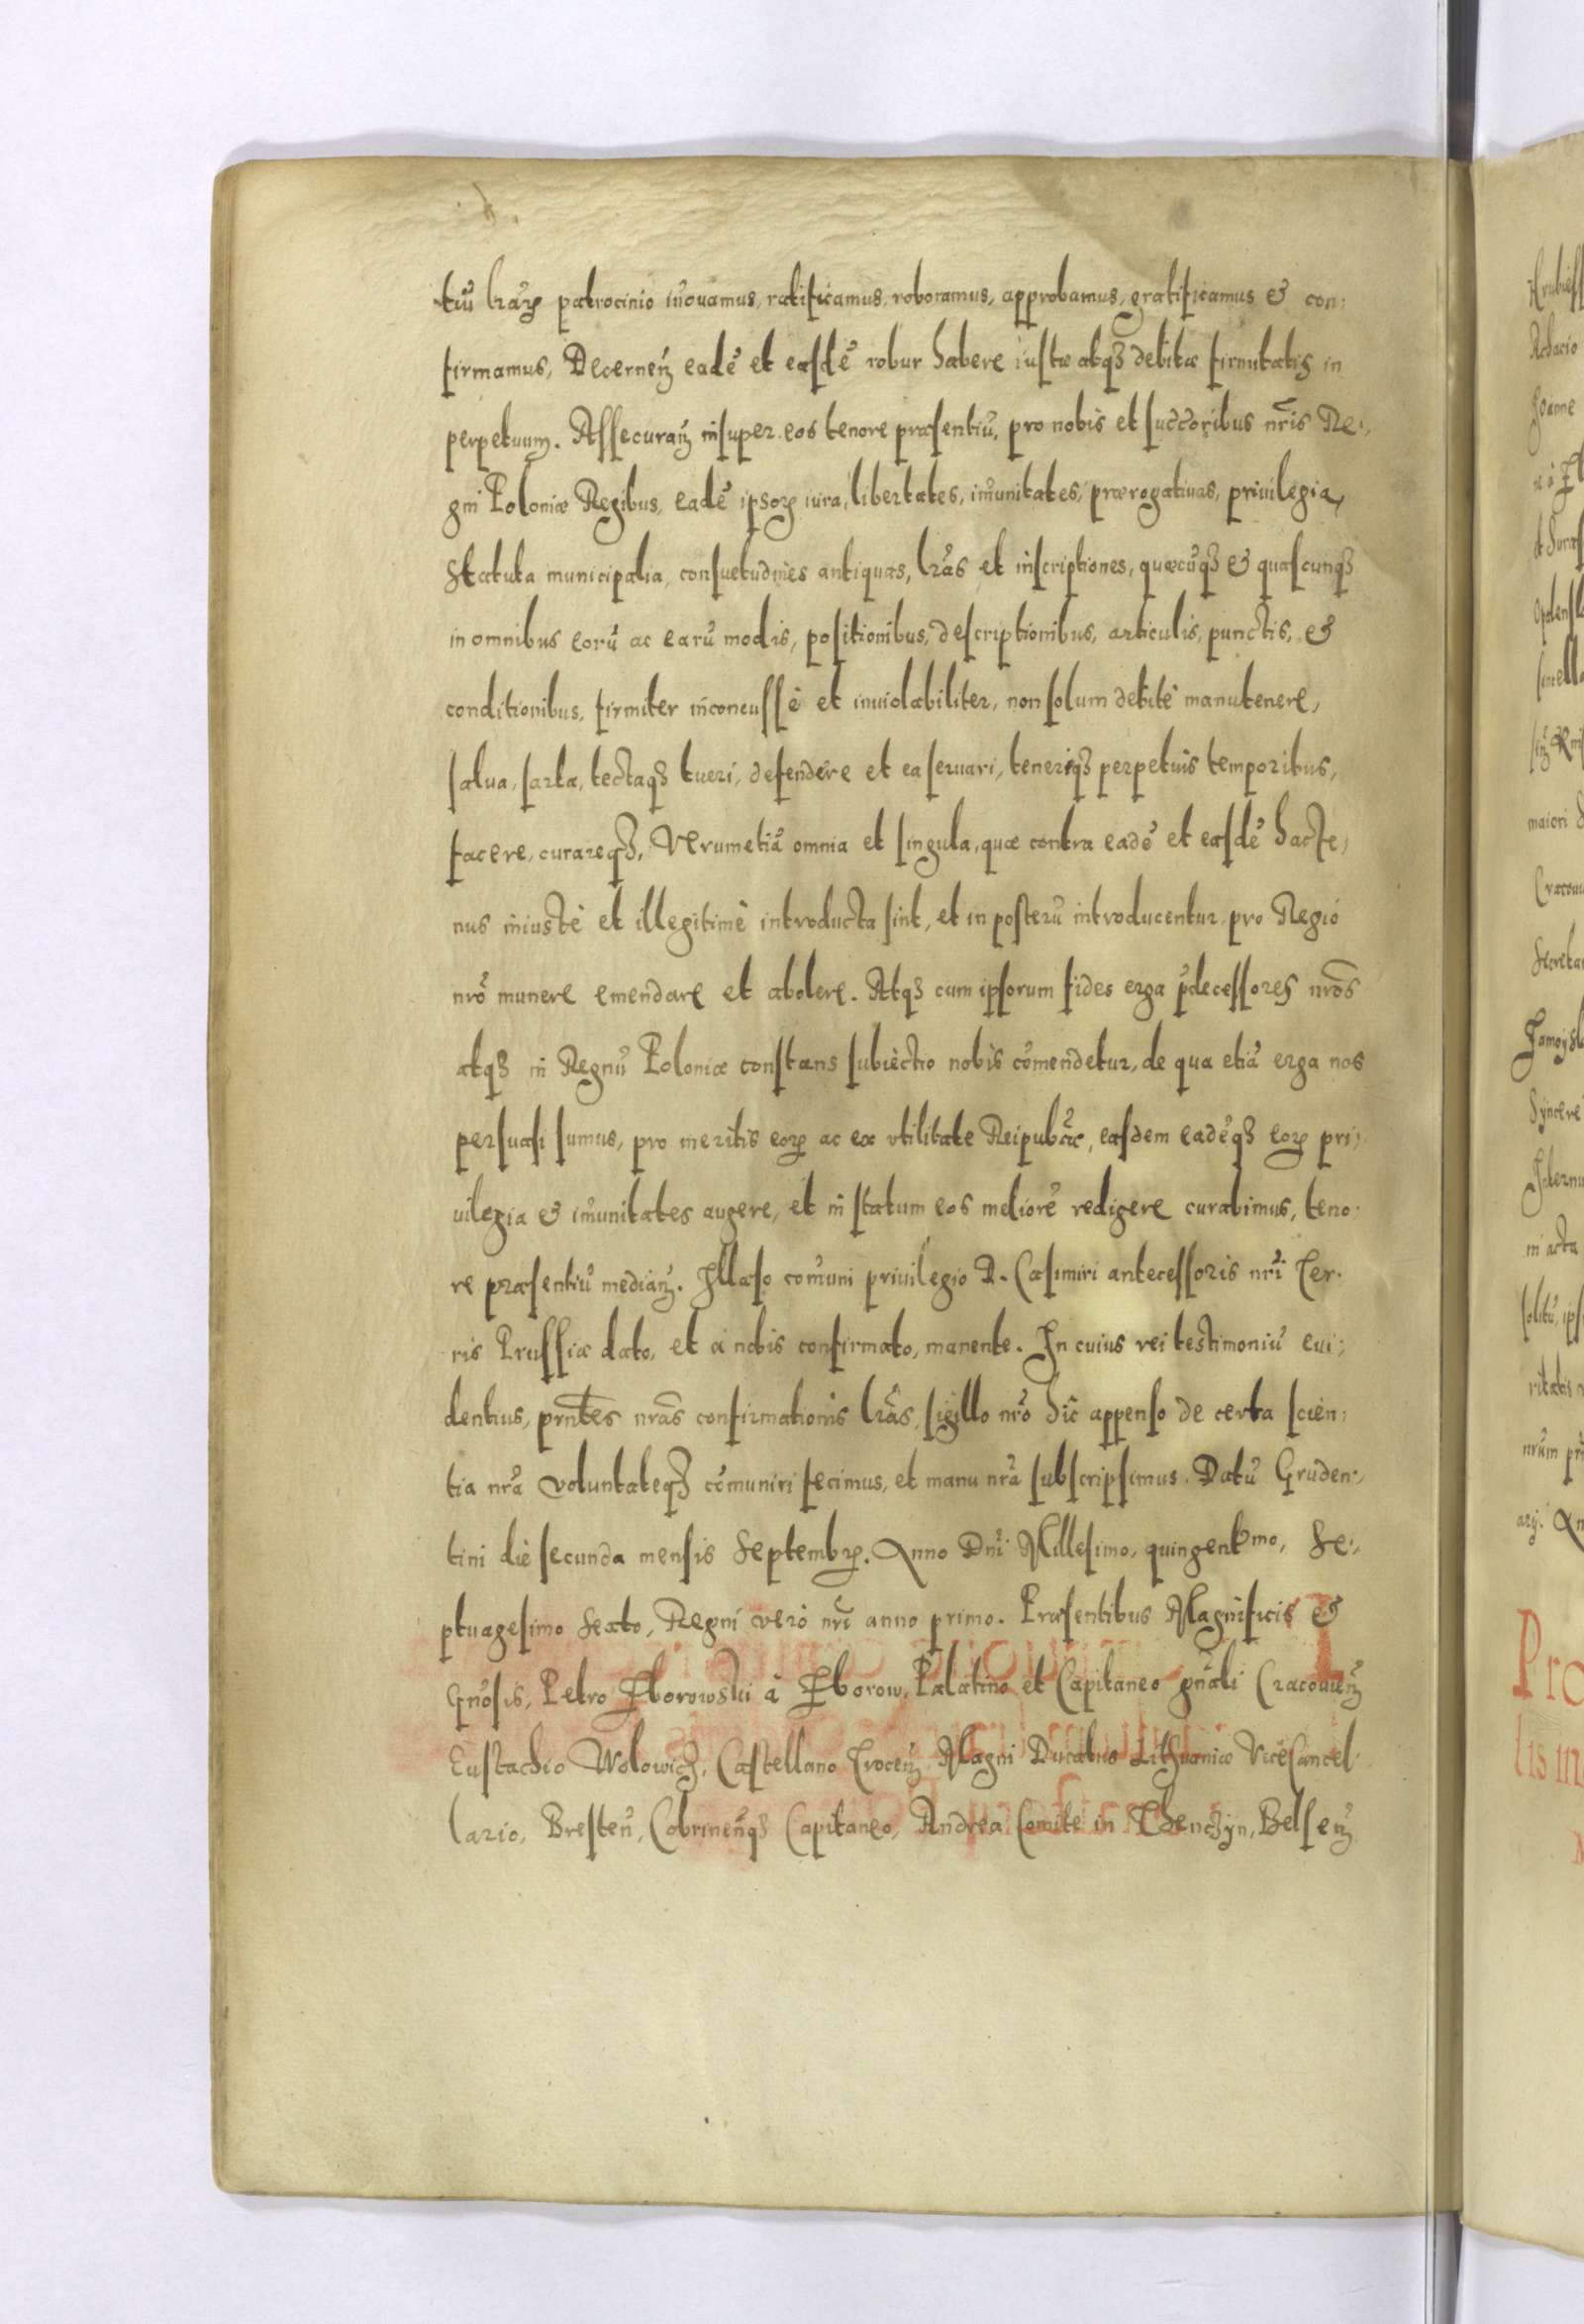 tiũ lr̃aꝝ patrocinio iñouamus, ratificamus, roboramus, approbamus, gratificamus & con:
firmamus, Decerneñ eadẽ et easdẽ robur habere iustæ atqꝫ debitæ firmitatis in
perpetuum. Assecurañ insuper eos tenore præsentiũ, pro nobis et succ̃oribus nr̃is Re:
gni Poloniæ Regibus, eadẽ ipsoꝝ iura, libertates, im̃unitates, prærogatiuas, priuilegia,
Statuta municipalia, consuetudines antiquas, lr̃as et inscriptiones, quæcũqꝫ & quascunqꝫ
in omnibus eorũ ac earũ modis, positionibus, descriptionibus, articulis, punctis, &
conditionibus, firmiter inconcussè et inuiolabiliter, non solum debitè manutenere,
salua, sarta, tectaqꝫ tueri, defendere et ea seruari, teneriqꝫ perpetuis temporibus,
facere, curareqꝫ, Verumetiã omnia et singula, quæ contra eadẽ et easdẽ hacte:
nus iniustè et illegitimè introducta sint, et in posterũ introducentur pro Regio
nr̃o munere emendare et abolere. Atqꝫ cum ipsorum fides erga p̃decessores nr̃os
atqꝫ in Regnũ Poloniæ constans subiectio nobis com̃endetur, de qua etiã erga nos
persuasi sumus, pro meritis eoꝝ ac ex vtilitate Reipub̃cæ, easdem eadẽqꝫ eoꝝ pri:
uilegia & im̃unitates augere, et in statum eos meliorẽ redigere curabimus, teno:
re præsentiũ mediañ. Illæso com̃uni priuilegio D. Casimiri antecessoris nr̃i Ter:
ris Prussiæ dato, et à nobis confirmato, manente. In cuius rei testimoniũ eui:
dentius, prñtes nr̃as confirmationis lr̃as, sigillo nr̃o hic appenso de certa scien:
tia nr̃a voluntateqꝫ com̃uniri fecimus, et manu nr̃a subscripsimus. Datũ Gruden:
tini die secunda mensis Septembꝝ. Anno Dñi Millesimo, quingentmo, Se:
ptuagesimo Sexto, Regni verò nr̃i anno primo. Præsentibus Magnificis &
Gñosis, Petro Zborowski à Zborow, Palatino et Capitaneo gñali Cracouieñ
Eustachio Wolowicz, Castellano Troceñ Magni Ducatus Lithuaniæ Vicecancel:
lario, Bresteñ, Cobrineñqꝫ Capitaneo, Andrea Comite in Thenczyn, Belseñ